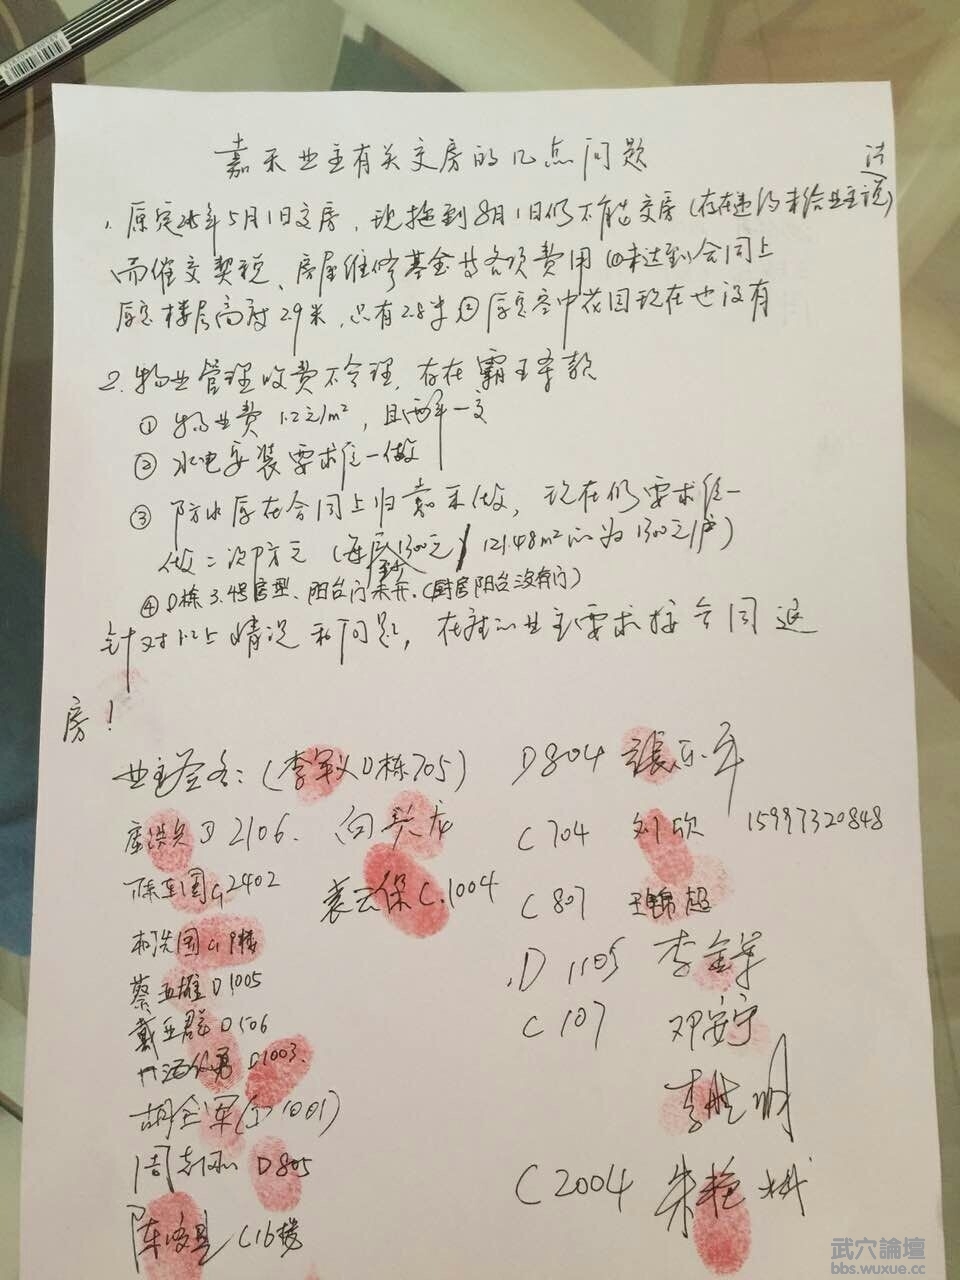 嘉禾业主有关交房的几点问题
1. 原定年5月1日交房，现拖到8月1日仍不能交房（存在违约未给业主说法）
而催交契税、房屋维修基金等各项费用①未达到合同上
原定楼层高度2.9米，只有2.8米②原定空中花园现在也没有
2. 物业管理收费不合理，存在霸王条款
① 物业费 1.2元/m²，且两年一交
② 水电安装要求统一做
③ 防水原在合同上归嘉禾做，现在仍要求统一
做二次防水（每层1300元/121.48m²的为1300元/户）
④ D栋3.4号房型、阳台门未开.（厨房阳台没有门）
针对以上情况和问题，在座的业主要求按合同退
房！
业主签名：（李军义D栋705） D804 張乐平
洪兵 D 2106. 向兴龙 C704 刘欣 15997320848
国 2402 袁云保 C.1004 C 807 王锦超
国 9楼 D 1105 李金军
蔡五雄 D1005 C 107 邓安宁
戴亚群 D506
勇 1003. 李胜明
胡金军（1001）
周志 D805 C2004 朱艳斌
陈 C16楼
武穴論壇
bbs.wuxue.cc